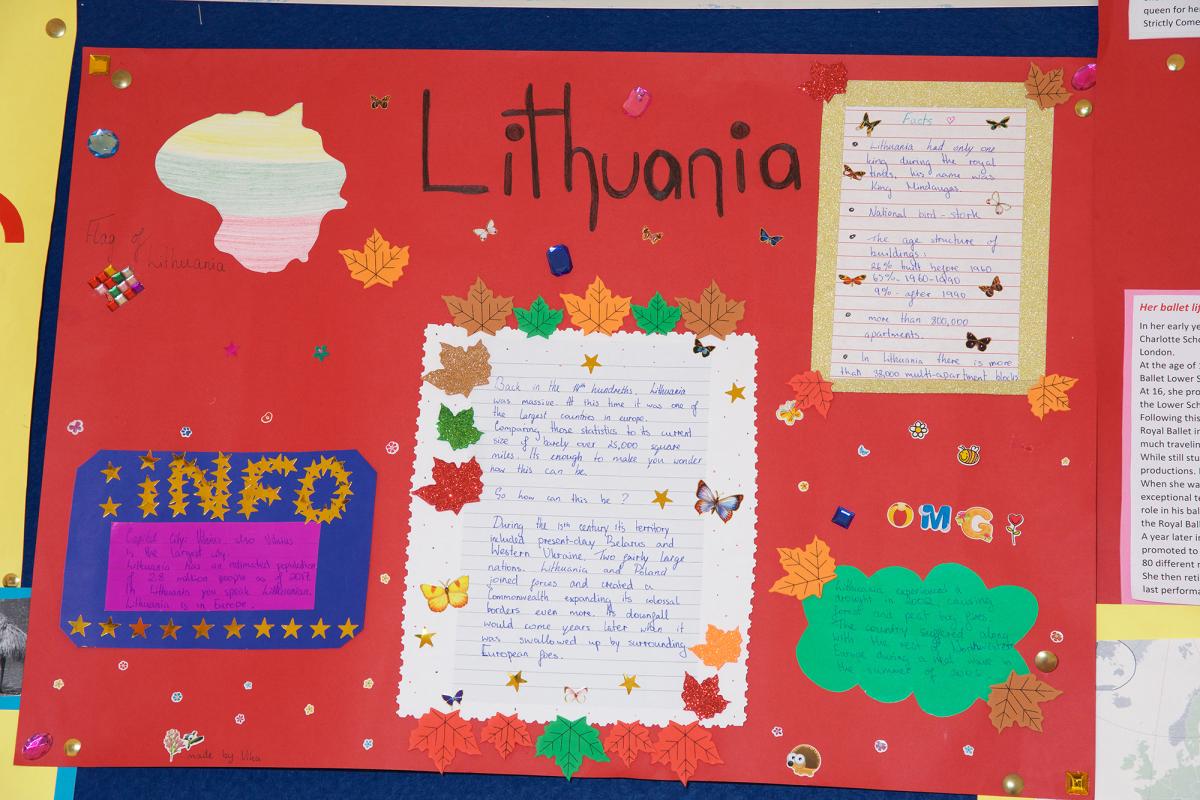 Lithuania
Flag of
Lithuania
Facts
Lithuania had only one
king during the royal
times, his name was
King Mindaugas.
National bird - stork
The age structure of
buildings:
26% built before 1960
65% - 1960-1990
9% - after 1990
more than 800,000
apartments.
In Lithuania there is more
than 38,000 multi-apartment blocks
INFO
Capital city: Vilnius, also Vilnius
is the largest city.
Lithuania has an estimated population
of 2.8 million people as of 2017.
In Lithuania you speak Lithuanian.
Lithuania is in Europe.
Back in the hundreths, Lithuania
was massive. At this time it was one of
the largest countries in europe.
Comparing those statistics to its current
size of barely over 25,000 square
miles. Its enough to make you wonder
how this can be.
So how can this be?
During the 15th century its territory
included present-day Belarus and
Western Ukraine. Two fairly large
nations. Lithuania and Poland
joined forces and created a
Commonwealth expanding its colossal
borders even more. Its downfall
would come years later when it
was swallowed up by surrounding
European foes.
OMG
Lithuania experienced a
drought in 2002, causing
forest and peat bog fires.
The country suffered along
with the rest of Northwestern
Europe during a heat wave in
the summer of 2006.
made by Vika
queen for her
Strictly Come
Her ballet lif
In her early ye
Charlotte Scho
London.
At the age of 1
Ballet Lower S
At 16, she pro
the Lower Sch
Following this
Royal Ballet in
much traveling
While still stu
productions. I
When she wa
exceptional te
role in his bal
the Royal Bal
A year later i
promoted to
80 different r
She then reti
last performa